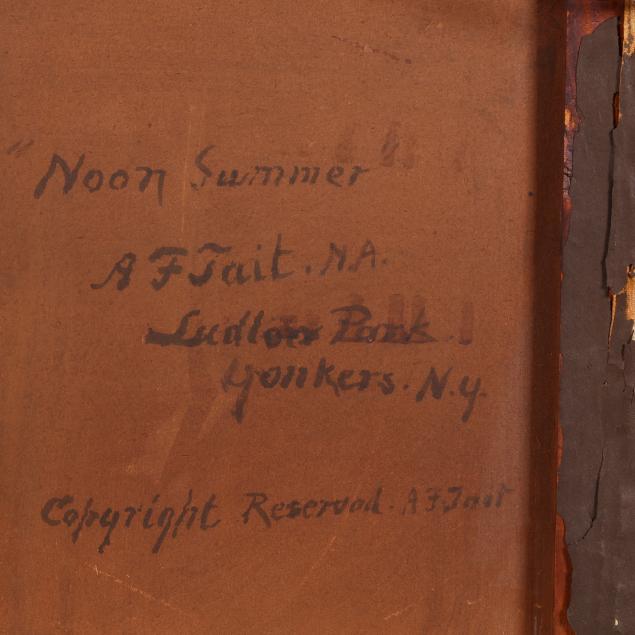 "Noon Summer
A F Tait. N.A.
Ludlow Park
Yonkers. N.y.
Copyright Reserved. A F Tait